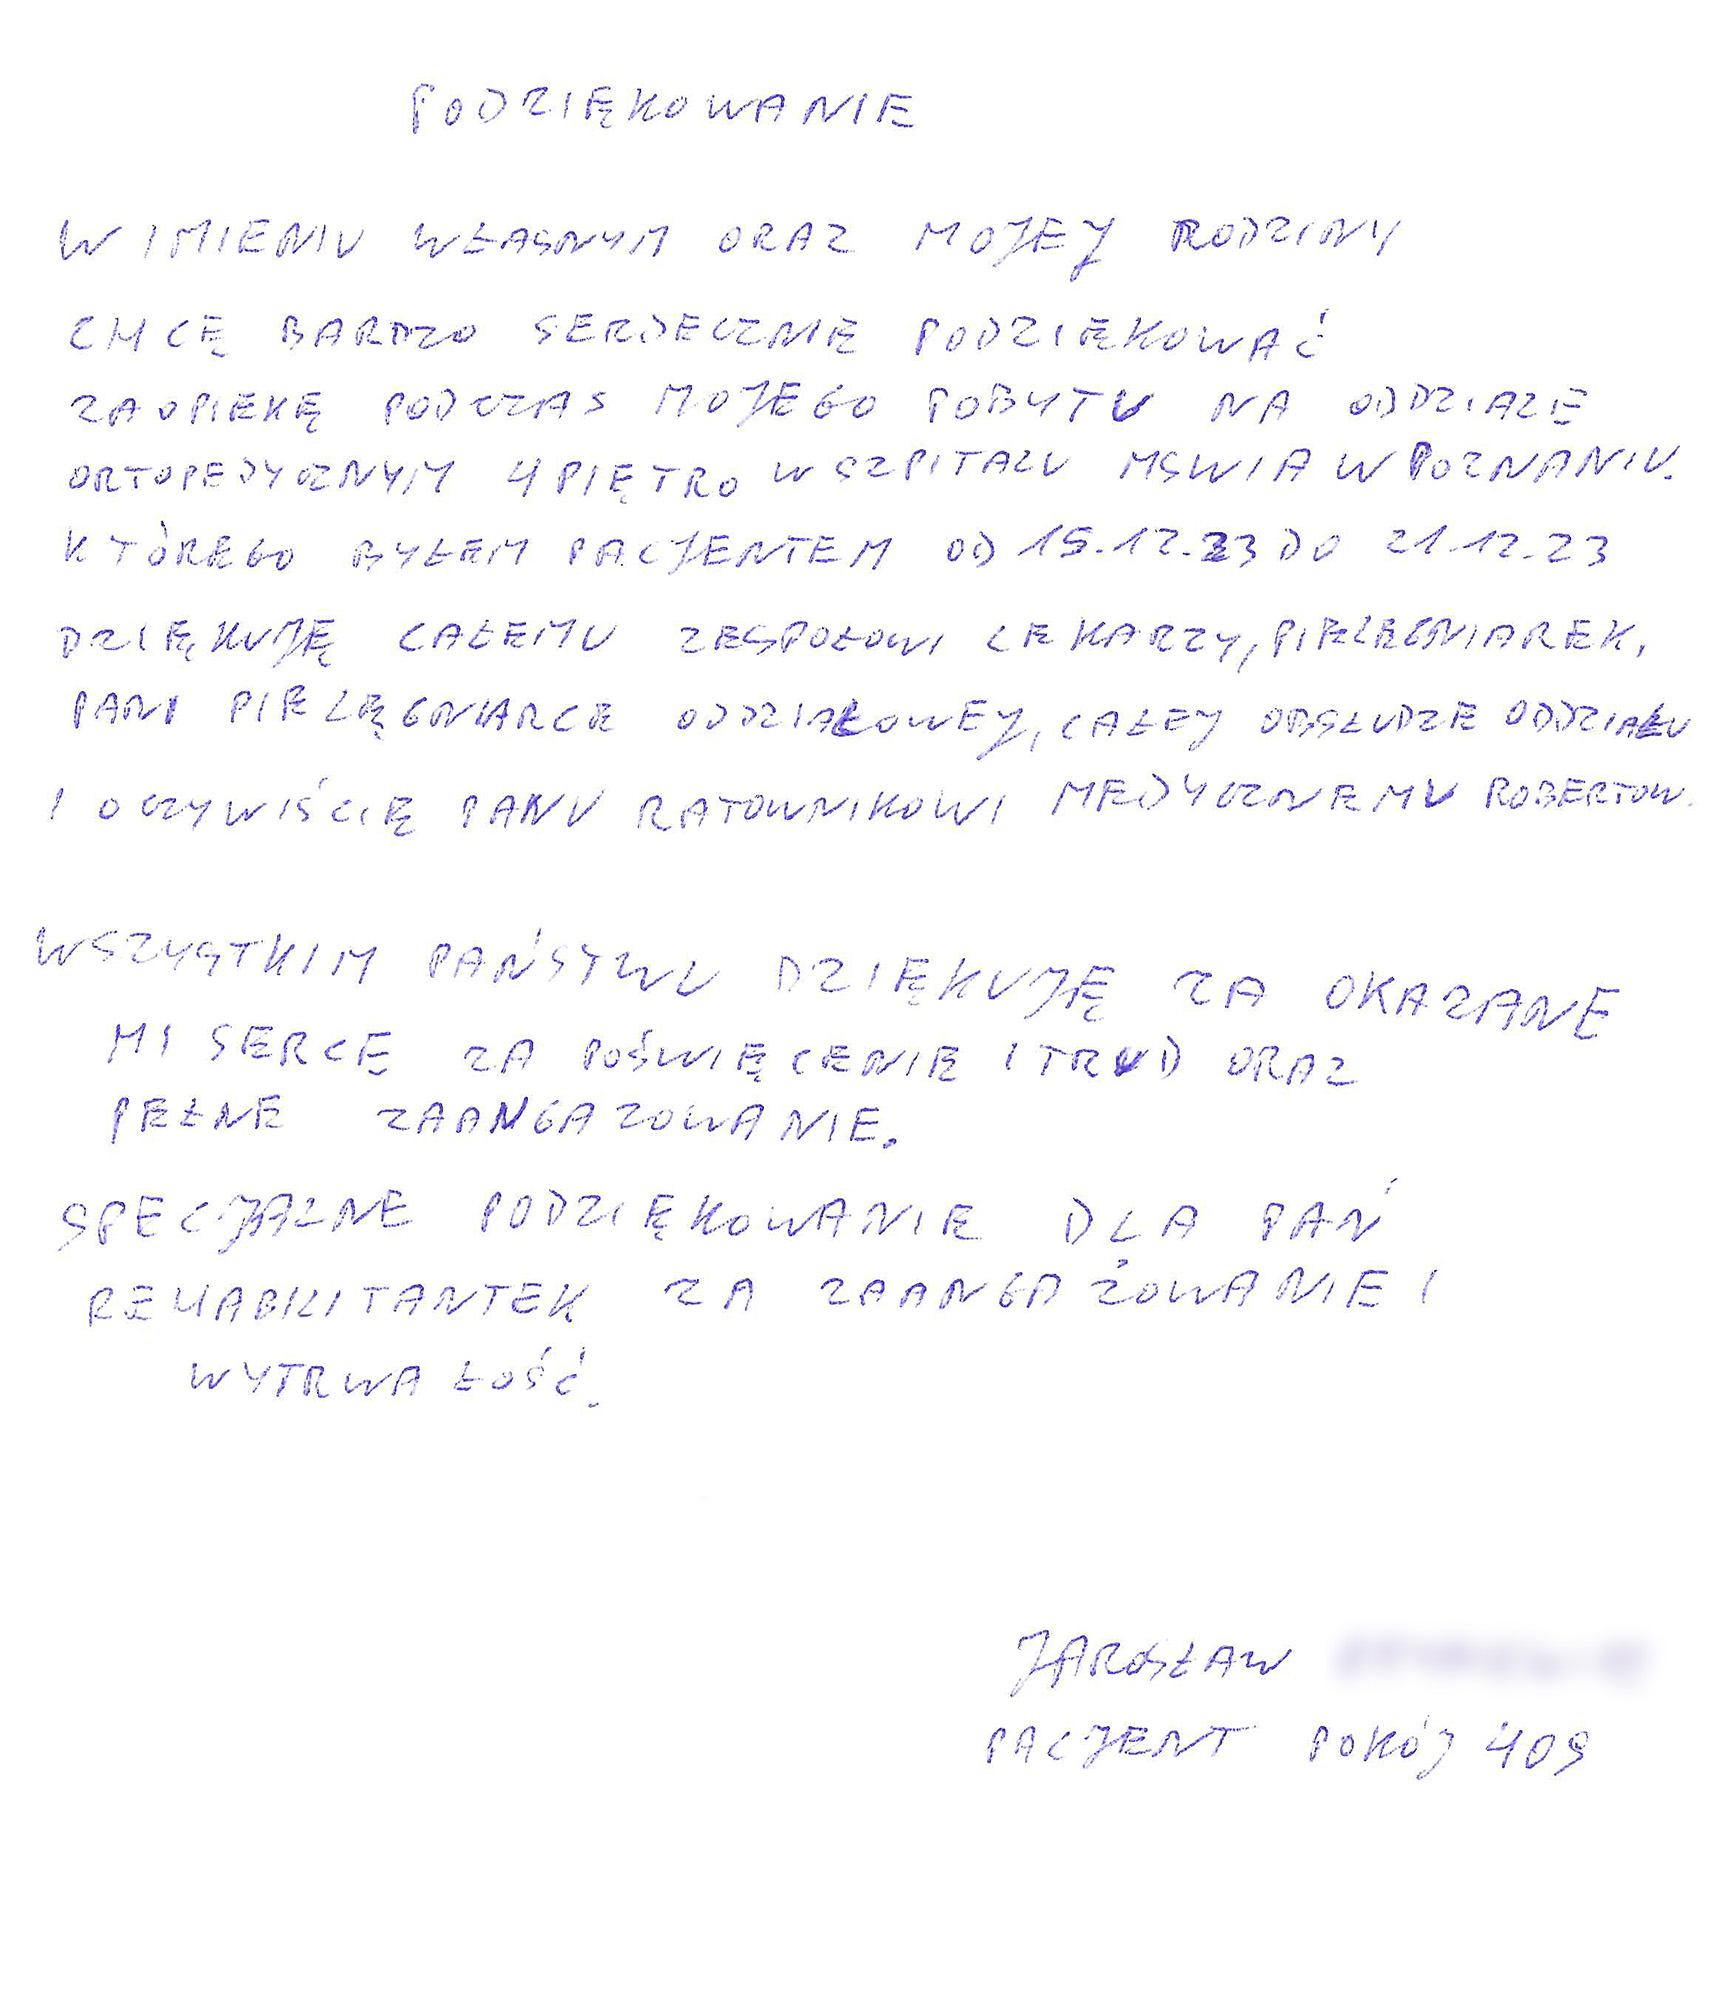 PODZIĘKOWANIE
W IMIENIU WŁASNYM ORAZ MOJEJ RODZINY
CHCĘ BARDZO SERDECZNIE PODZIĘKOWAĆ
ZA OPIEKĘ PODCZAS MOJEGO POBYTU NA ODDZIALE
ORTOPEDYCZNYM 4 PIĘTRO W SZPITALU MSWIA W POZNANIU.
KTÓREGO BYŁEM PACJENTEM OD 15.12.23 DO 21.12.23
DZIĘKUJĘ CAŁEMU ZESPOŁOWI LEKARZY, PIELĘGNIAREK,
PANI PIELĘGNIARCE ODDZIAŁOWEJ, CAŁEJ OBSŁUDZE ODDZIAŁU
I OCZYWIŚCIE PANU RATOWNIKOWI MEDYCZNEMU ROBERTOW.
WSZYSTKIM PAŃSTWU DZIĘKUJĘ ZA OKAZANE
MI SERCE ZA POŚWIĘCENIE I TRUD ORAZ
PEŁNE ZAANGAZOWANIE.
SPECJALNE PODZIĘKOWANIE DLA PAŃ
REHABILITANTEK ZA ZAANGAŻOWANIE I
WYTRWAŁOŚĆ.
JAROSŁAW
PACJENT POKÓJ 409